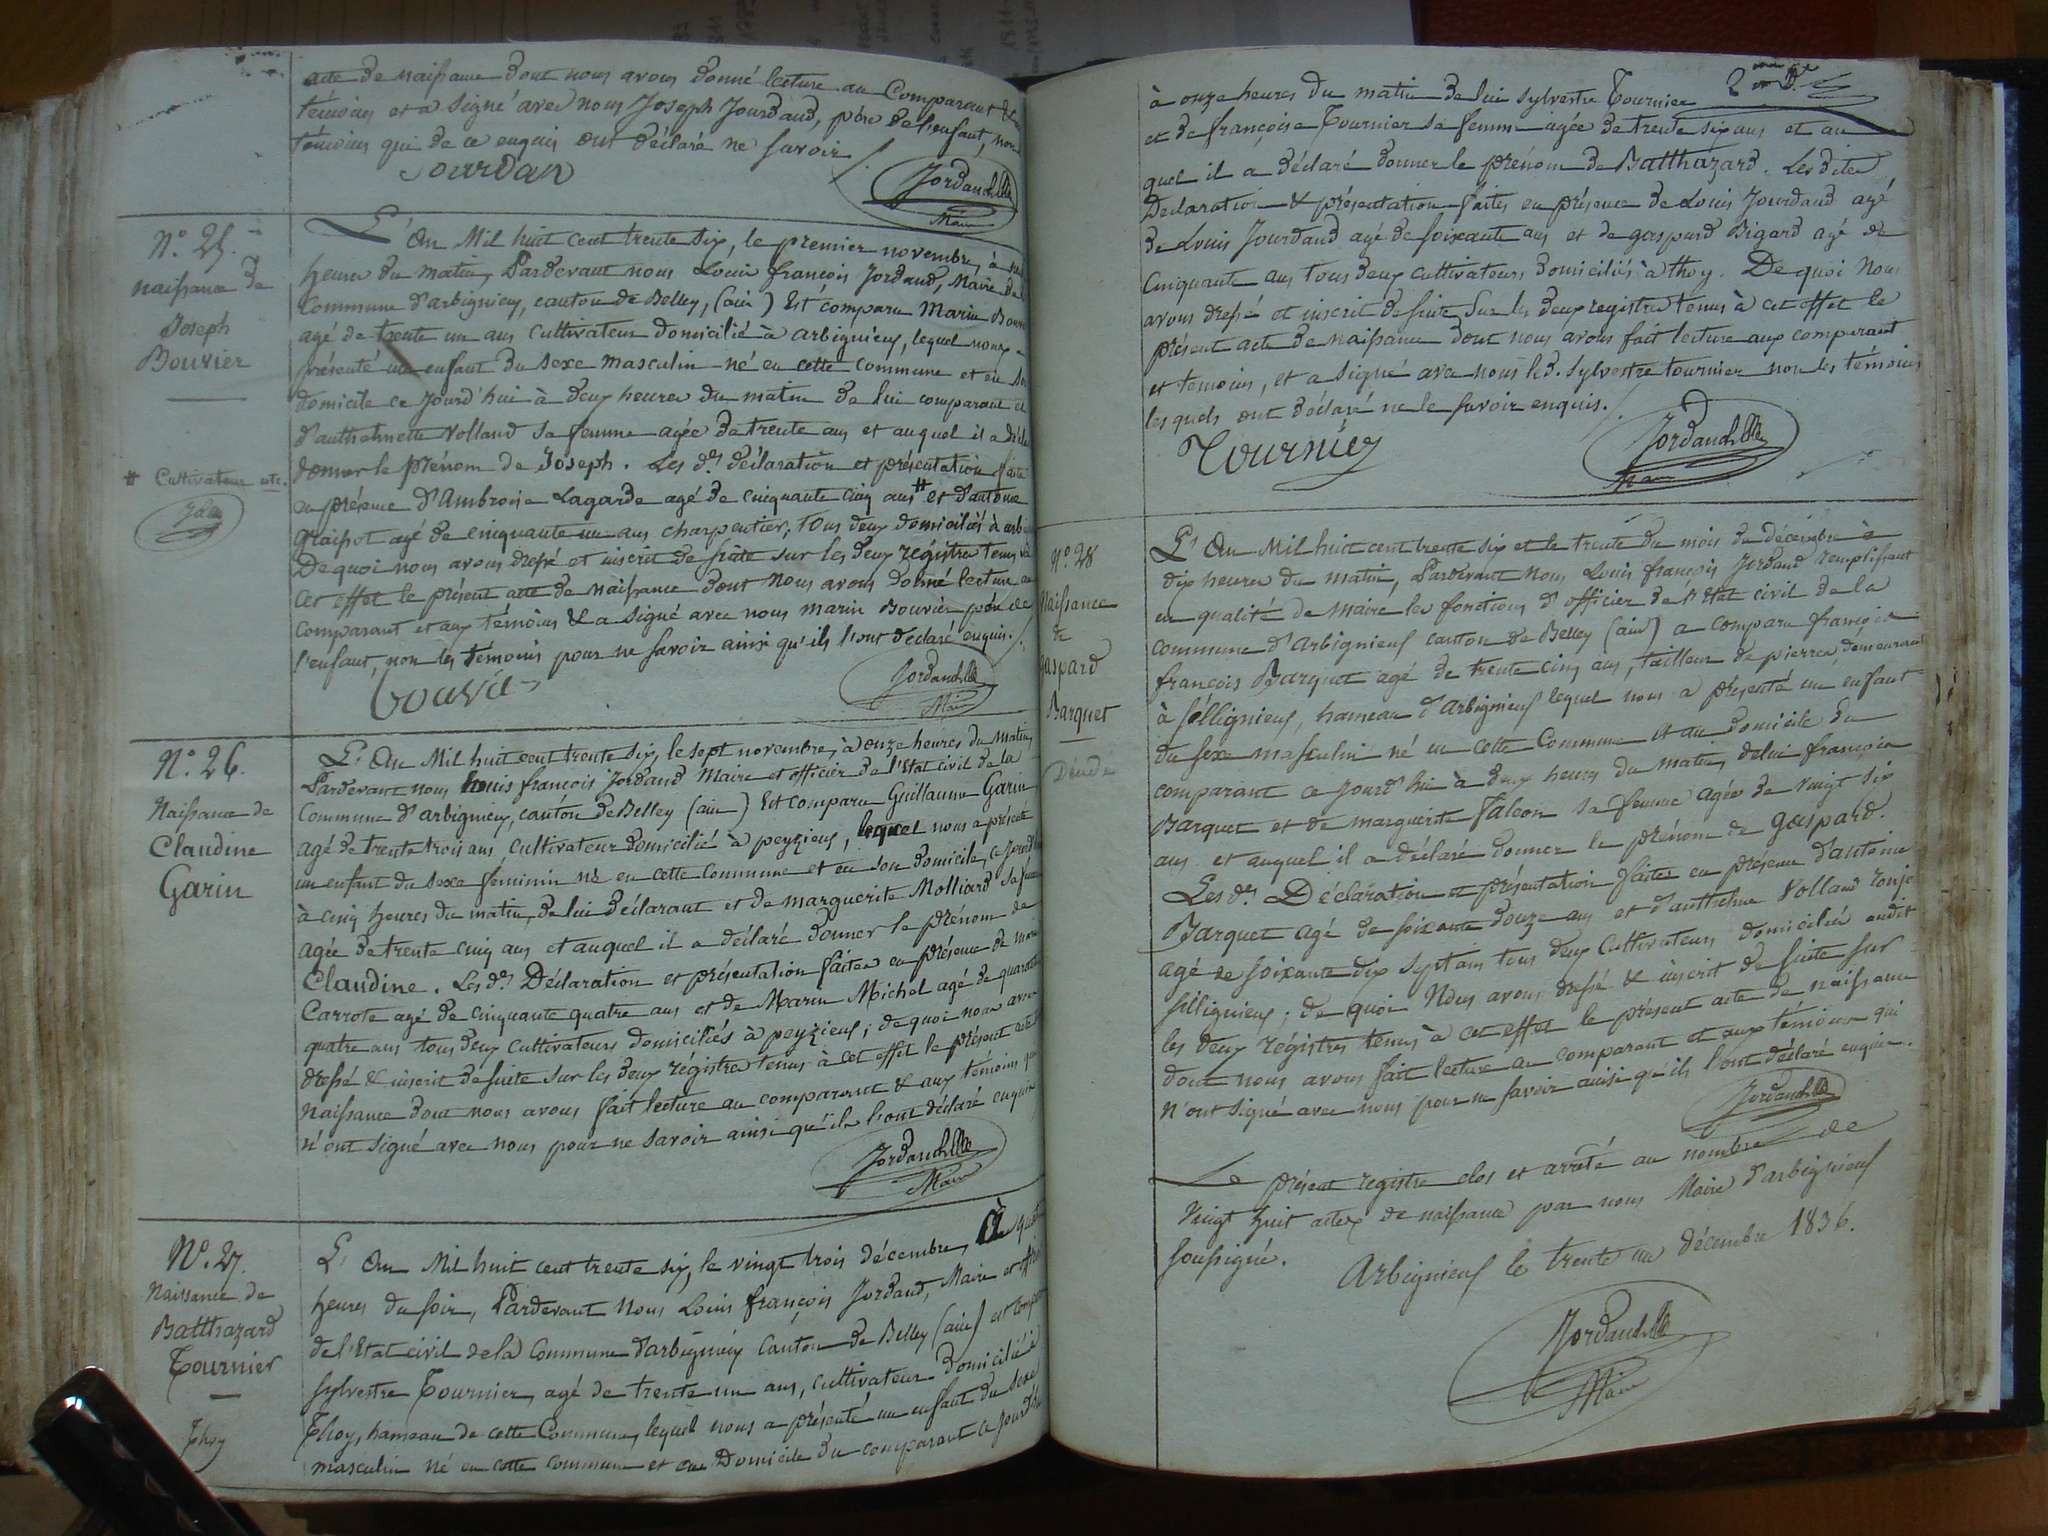 acte de naissance dont nous avons donné lecture au Comparant &
témoins et a signé avec nous Joseph Jourdand, père de l'enfant, non
témoins qui de ce enquis ont déclaré ne savoir
Jourdan
Jordand
Maire
N.° 25.
Naissance de
Joseph
Bouvier
# Cultivateur
L'An Mil huit cent trente six, le premier novembre, à
heures du matin, Pardevant nous Louis françois Jordand, Maire de
Commune d'arbignieu, canton de Belley, (ain) Est comparu Marin
agé de trente un ans Cultivateur domicilié à arbignieu, lequel nous
présenté un enfant du sexe masculin né en cette commune et en son
domicile ce jourd'hui à deux heures du matin de lui comparant et
d'anthelmette Volland sa femme agée de trente ans et auquel il a
donner le prénom de Joseph. Les d.es déclaration et présentation faite
en présence d'Ambroise Lagarde agé de cinquante cinq ans # et d'antoine
agé de cinquante un ans charpentier, tous deux domiciliés à
De quoi nous avons dressé et inscrit de suite sur les deux registres tenus à
cet effet le présent acte de naissance dont nous avons donné lecture au
comparant et aux témoins & a signé avec nous marin Bouvier père de
l'enfant, non les témoins pour ne savoir ainsi qu'ils l'ont déclaré enquis.
bouvier
Jordand
Maire
N.° 26.
Naissance de
Claudine
Garin
L'An Mil huit cent trente six, le sept novembre, à onze heures du matin,
Pardevant nous Louis françois Jordand Maire et officier de l'Etat civil de la
Commune d'arbignieu, canton de Belley (ain) Est comparu Guillaume Garin
agé de trente trois ans, cultivateur domicilié à peyzieu, lequel nous a présenté
un enfant du sexe féminin né en cette Commune et en son domicile, ce jourd'hui
à cinq heures du matin, de lui déclarant et de marguerite Molliard sa femme
agée de trente cinq ans et auquel il a déclaré donner le prénom de
Claudine. Les d.es Déclaration et présentation faites en présence de
Carrote agé de cinquante quatre ans et de Marin Michel agé de quarante
quatre ans tous deux cultivateurs domiciliés à peyzieu; de quoi nous avons
dressé & inscrit de suite sur les deux régistres tenus à cet effet le présent acte
naissance dont nous avons fait lecture au comparant & aux témoins qui
n'ont signé avec nous pour ne savoir ainsi qu'ils l'ont déclaré enquis
Jordand
Maire
N.° 27.
Naissance de
Batthazard
Tournier
Thoy
L'An Mil huit cent trente six, le vingt trois décembre, à quatre
heures du soir, Pardevant Nous Louis françois Jordand, Maire et officier
de l'Etat civil de la Commune d'arbignieu Canton de Belley (ain) est comparu
Sylvestre Tournier, agé de trente un ans, cultivateur domicilié à
Thoy, hameau de cette Commune, lequel nous a présenté un enfant du sexe
masculin né en cette commune et au Domicile du comparant ce jourd'hui
à onze heures du matin de lui Sylvestre Tournier
et de françoise Tournier sa femme agée de trente six ans et au
quel il a déclaré donner le prénom de Batthazard. Les dites
Déclaration & présentation faites en présence de Louis Jourdand agé
de Louis Jourdand agé de soixante ans et de gaspard Bigard agé de
Cinquante ans tous deux cultivateurs domiciliés à thoy. De quoi Nous
avons dressé et inscrit de suite sur les deux registres tenus à cet effet le
présent acte de naissance dont nous avons fait lecture aux comparant
et temoins, et a signé avec nous le d. Sylvestre tournier non les témoins
lesquels ont déclaré ne le savoir enquis.
Tournier
Jordand
Maire
N.° 28
Naissance
de
gaspard
Barquet
Décédé
L'An Mil huit cent trente six et le trente du mois de décembre à
dix heures du matin, Pardevant Nous Louis françois Jordand remplissant
en qualité de Maire les fonctions d'officier de l'Etat civil de la
commune d'Arbignieu canton de Belley (ain) a comparu françois
françois Barquet agé de trente cinq ans, tailleur de pierres, demeurant
à Sillignieu, hameau d'Arbignieu lequel nous a présenté un enfant
du sexe masculin né en cette Commune et au domicile du
comparant ce jourd'hui à deux heures du matin, de lui françois
Barquet et de marguerite Falcon sa femme agée de vingt six
ans et auquel il a déclaré donner le prénom de gaspard.
Les d.es Déclaration et présentation faites en présence d'antoine
Barquet agé de soixante douze ans et d'anthelme Volland
agé de soixante dix sept ans tous deux Cultivateurs domiciliés audit
Sillignieu; de quoi Nous avons dressé & inscrit de suite sur
les deux régistres tenus à cet effet le présent acte de naissance
dont nous avons fait lecture au comparant et aux témoins qui
n'ont signé avec nous pour ne savoir ainsi qu'ils l'ont déclaré enquis.
Jordand
Le présent registre clos et arrêté au nombre de
vingt huit actes de naissance par nous Maire d'arbignieu
soussigné.
Arbignieu le trente un décembre 1836.
Jordand
Maire